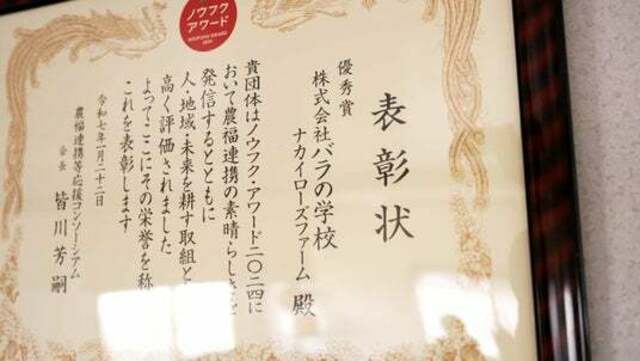 ノウフク
アワード
表彰状
優秀賞
株式会社バラの学校
ナカイローズファーム 殿
貴団体はノウフク・アワード二〇二四に
おいて農福連携の素晴らしさを
発信するとともに
人・地域・未来を耕す取組と
高く評価されました
よってここにその栄誉を称
これを表彰します
令和七年一月二十二日
農福連携等応援コンソーシアム
会長 皆川芳嗣